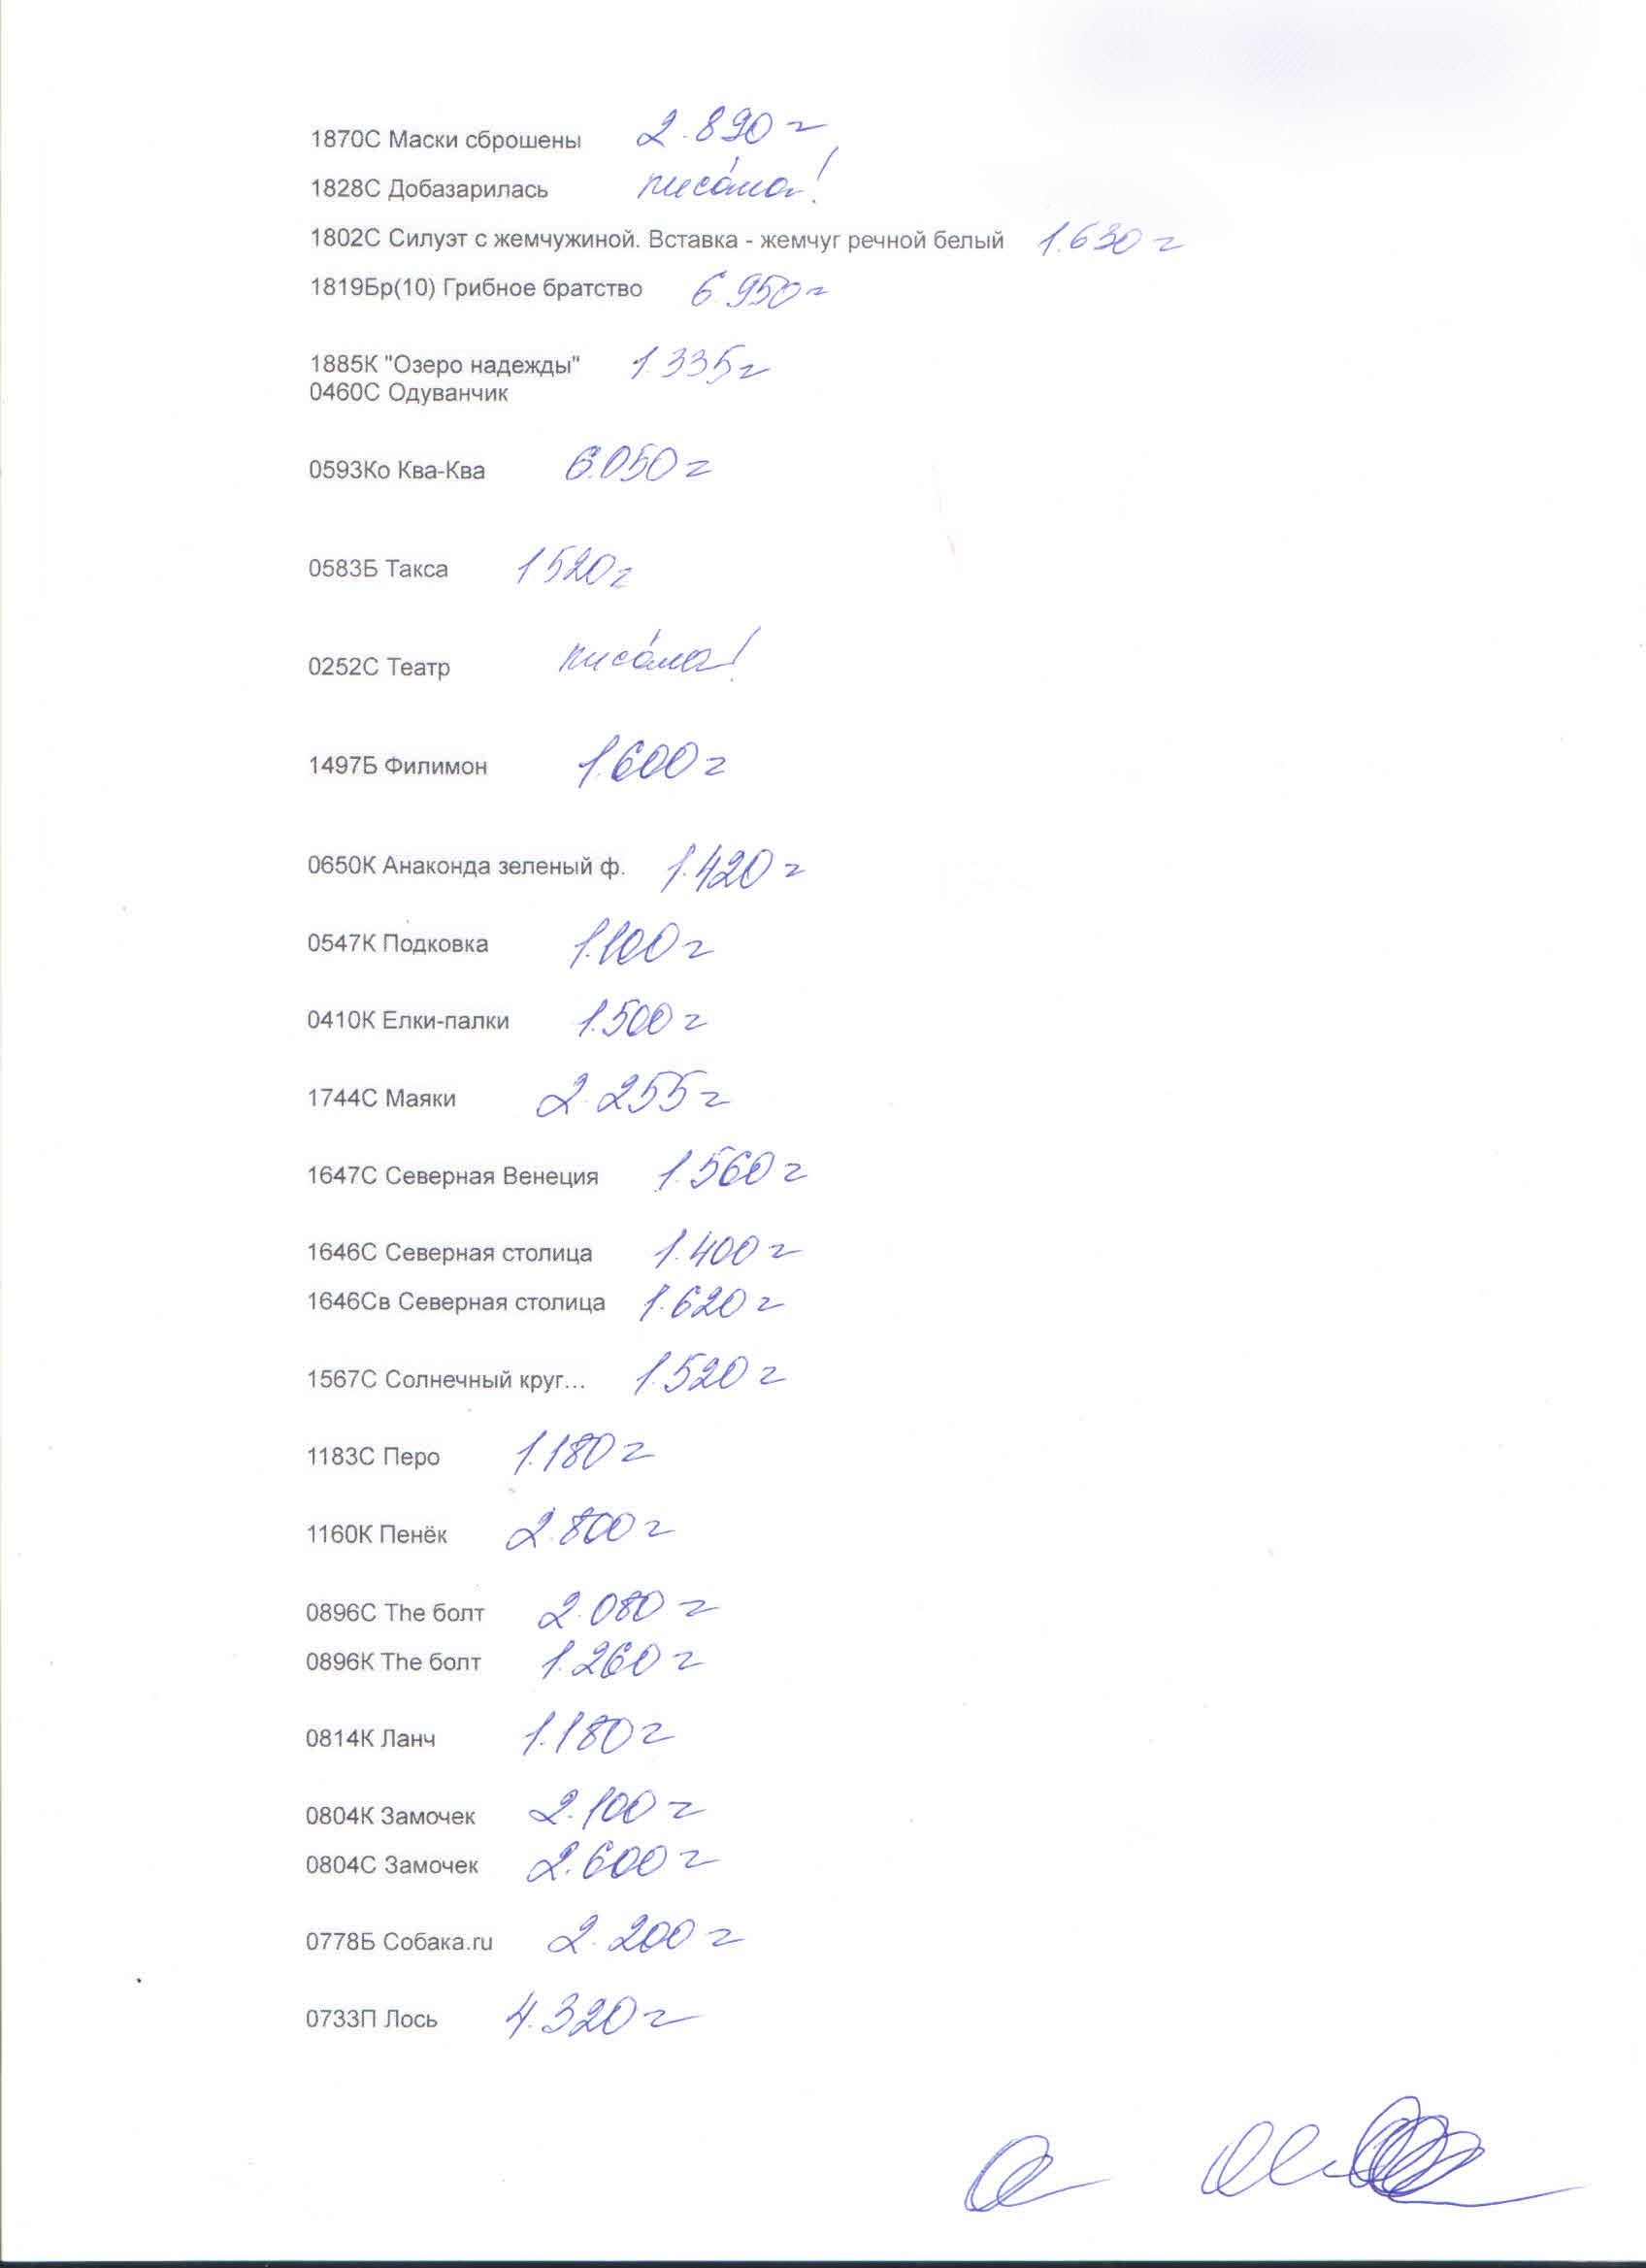 1870С Маски сброшены 2.890 г
1828С Добазарилась писала!
1802С Силуэт с жемчужиной. Вставка - жемчуг речной белый 1.630 г
1819Бр(10) Грибное братство 6.950 г
1885К "Озеро надежды" 1.335 г
0460С Одуванчик
0593Ко Ква-Ква 6.050 г
0583Б Такса 1520 г
0252С Театр писала!
1497Б Филимон 1.600 г
0650К Анаконда зеленый ф. 1.420 г
0547К Подковка 1.100 г
0410К Елки-палки 1.500 г
1744С Маяки 2.255 г
1647С Северная Венеция 1.560 г
1646С Северная столица 1.400 г
1646Св Северная столица 1.620 г
1567С Солнечный круг... 1.520 г
1183С Перо 1.180 г
1160К Пенёк 2.800 г
0896С The болт 2.080 г
0896К The болт 1.260 г
0814К Ланч 1.180 г
0804К Замочек 2.100 г
0804С Замочек 2.600 г
0778Б Собака.ru 2.200 г
0733П Лось 4.320 г